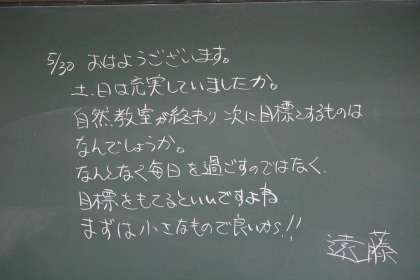 5/30 おはようございます。
土、日は充実していましたか。
自然教室が終わり 次に目標とするものは
なんでしょうか。
なんとなく毎日を過ごすのではなく、
目標をもてるといいですよね
まずは小さなもので良いから!!
遠藤